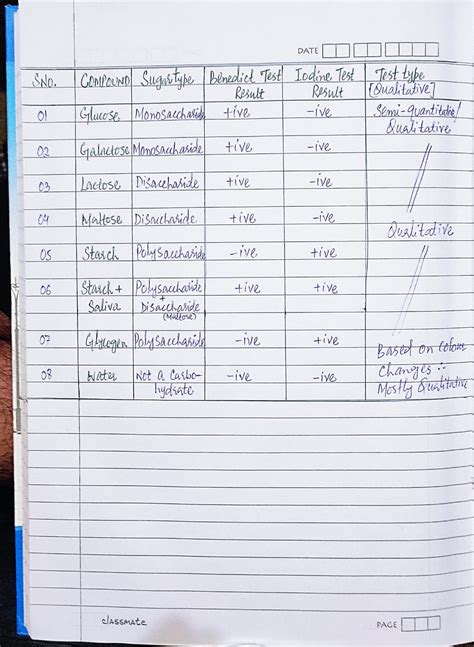 DATE
SNO. COMPOUND Sugar type Benedict Test Result Iodine Test Result Test type [Qualitative]
01 Glucose Monosaccharide +ive -ive Semi-quantitative/ Qualitative
02 Galactose Monosaccharide +ive -ive "
03 Lactose Disaccharide +ive -ive
04 Maltose Disaccharide +ive -ive Qualitative
05 Starch Polysaccharide -ive +ive "
06 Starch + Saliva Polysaccharide + Disaccharide (Maltose) +ive +ive
07 Glycogen Polysaccharide -ive +ive Based on colour
08 Water Not a Carbo-hydrate -ive -ive changes ∴ Mostly Qualitative
classmate
PAGE